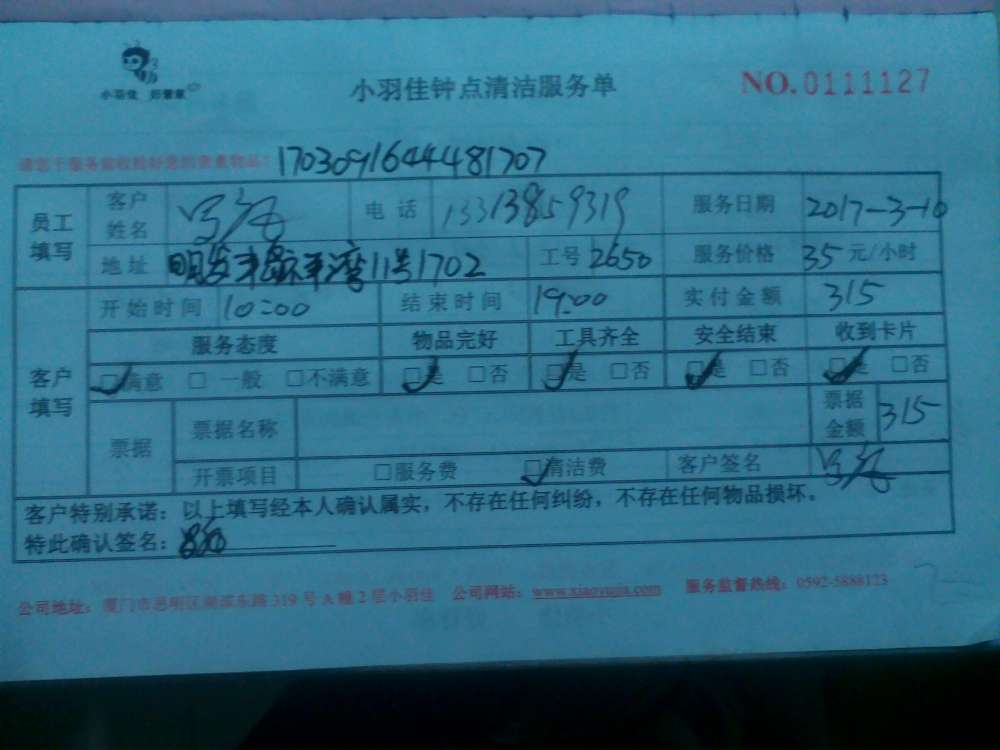 小羽佳 好管家
小羽佳钟点清洁服务单
NO.0111127
1703091644481707
员工填写
客户姓名
电话 13313859319
服务日期 2017-3-10
地址 11号1702
工号 2650
服务价格 35 元/小时
客户填写
开始时间 10:00
结束时间 19:00
实付金额 315
服务态度 物品完好 工具齐全 安全结束 收到卡片
□满意 □一般 □不满意 □是 □否 □是 □否 □是 □否 □是 □否
票据
票据名称
票据金额 315
开票项目 □服务费 □清洁费 客户签名
客户特别承诺：以上填写经本人确认属实，不存在任何纠纷，不存在任何物品损坏。
特此确认签名：
公司地址：厦门市思明区湖滨东路319号A幢2层小羽佳 公司网站：www.xiaoyujia.com 服务监督热线：0592-5888123